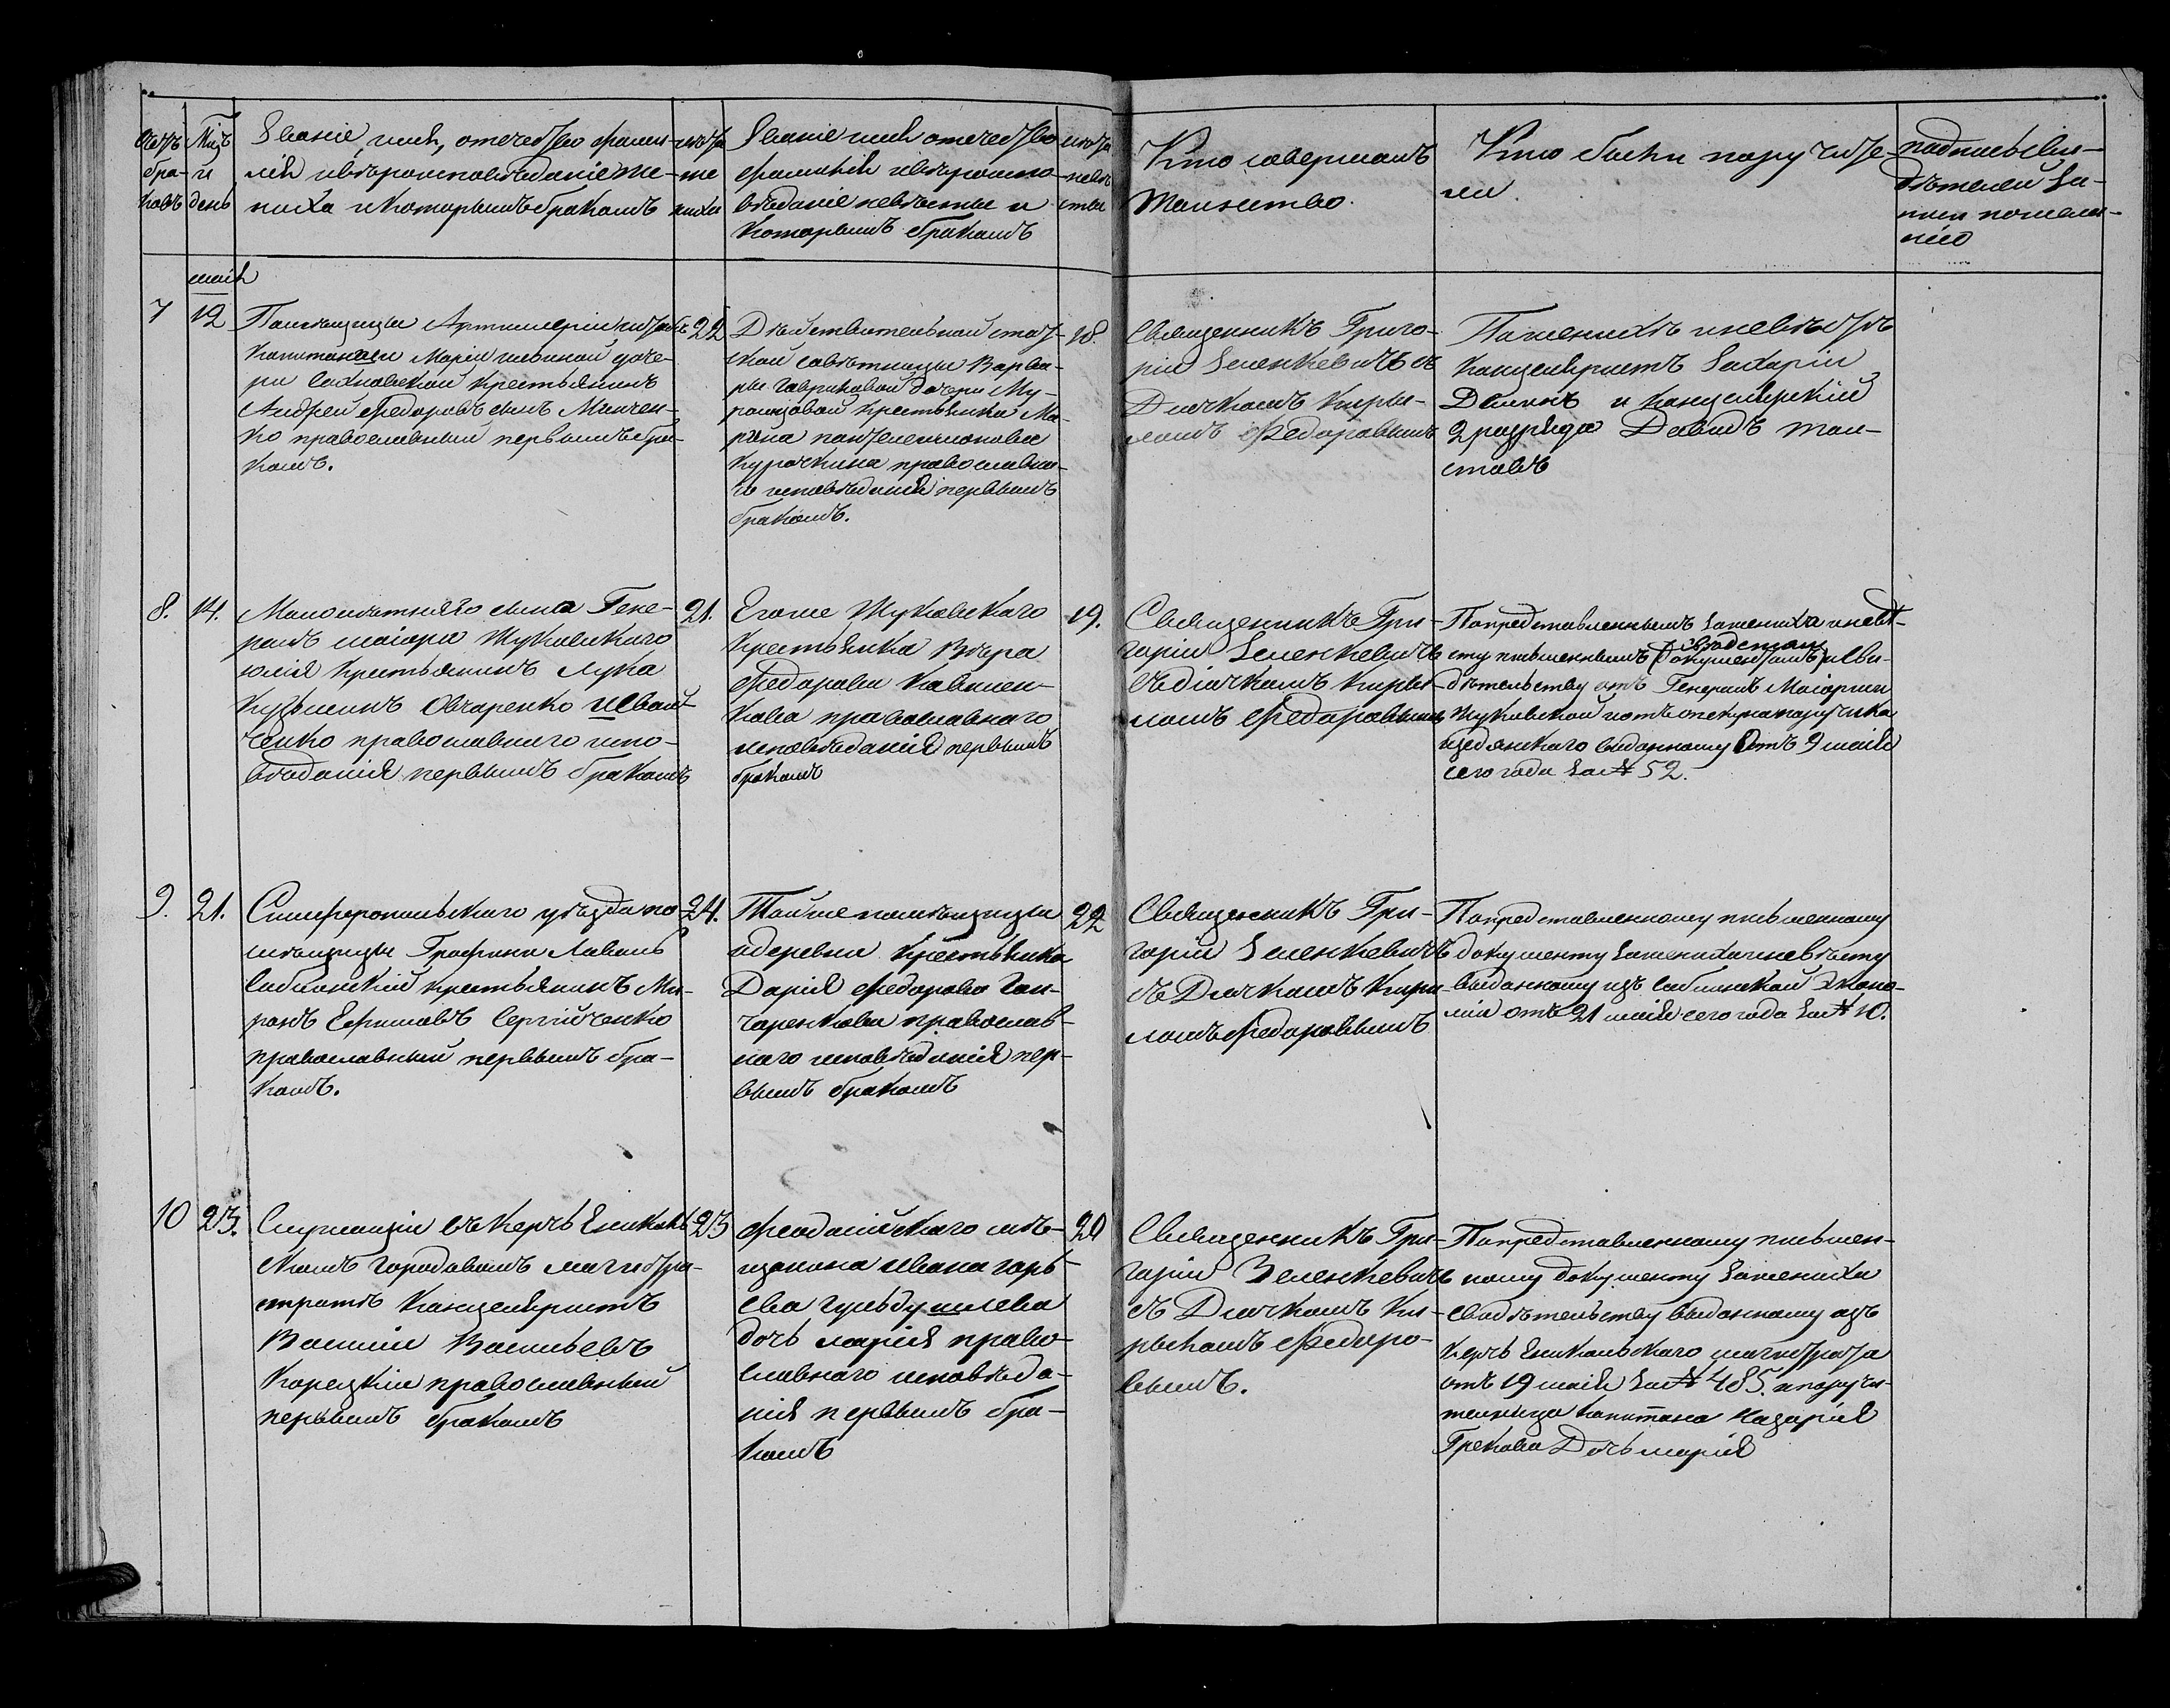 Счетъ браковъ
Мцъ и день
Званіе, имя, отечество фами-
лія и вѣроисповѣданіе же-
ниха и которымъ бракомъ
лѣта
же
ниха
Званіе имя отечество
фамилія и вѣроиспо-
вѣданіе невѣсты и
которымъ бракомъ
лѣта
невѣ
сты
Кто совершалъ
таинство.
Кто были поручите-
ли
подпись сви-
дѣтелей за-
писи по жела-
нію
маія
7
12
Помѣщицы Артиллеріи штабсъ
капитанши Маріи
ри Сахновской крестьянинъ
Андрей Федоровъ сынъ Минчен-
ко православный первымъ бра-
комъ.
22
Дѣйствительной стат-
ской совѣтницы Варва-
ры Гавриловой дочери Му-
ромцовой крестьянка Ма-
рина
Курочкина православна-
го исповѣданія первымъ
бракомъ.
18.
Священникъ Григо-
рій Зеленкевичъ съ
Дьячкомъ Кири-
ломъ Федоровымъ
По женихѣ и невѣстѣ
Канцеляристъ Захарій
и канцелярскій
2 разряда Давидъ Тол-
стовъ
8.
14.
Малолѣтняго сына Гене-
ралъ маіора Жуковскаго
Юлія крестьянинъ Лука
Кузьминъ Овчаренко
ченко православнаго испо-
вѣданія первымъ бракомъ
21.
Его же Жуковскаго
крестьянка Вѣра
Федорова
кова православнаго
исповѣданія первымъ
бракомъ
19.
Священникъ Гри-
горій Зеленкевичъ
съ діачкомъ Кири-
ломъ Федоровымъ
По представленнымъ за жениха и невѣ-
сту письменнымъ документамъ и сви-
дѣтельству отъ Генералъ Маіорши
Жуковской и отъ опекуна поручика
выданному отъ 9 маія
сего года за № 52.
9.
21.
Симферопольскаго уѣзда по
мѣщицы Графини Лаваль
Саблинскій крестьянинъ Ми-
ронъ Ефимовъ Сергійченко
православный первымъ бра-
комъ.
24.
Той же помѣщицы
и деревни крестьянка
Дарія Федорова Гон-
чаренкова православ-
наго исповѣданія пер-
вымъ бракомъ
22
Священникъ Гри-
горій Зеленкевичъ
съ Дьячкомъ Кири-
ломъ Федоровымъ
По представленному письменному
документу за жениха и невѣсту
выданному изъ Саблинской Эконо-
міи отъ 21 маія сего года за № 10.
10
23.
Служащій въ Керчь Еникаль
скомъ городовомъ магистра-
стратѣ Канцеляристъ
Василій Васильевъ
Корецкій православный
первымъ бракомъ
23
Феодосійскаго мѣ-
щанина Ивана
дочь Марія право-
славнаго исповѣда-
нія первымъ бра-
комъ
20
Священникъ Гри-
горій Зеленкевичъ
съ Дьячкомъ Ки-
рыломъ Федоро-
вымъ.
По представленному письмен-
ному документу за жениха
свидѣтельству выданному изъ
Керчь Еникольскаго магистрата
отъ 19 маія за № 485. и поручи-
телница Капитана Назарія
Грекова Дочь Марія